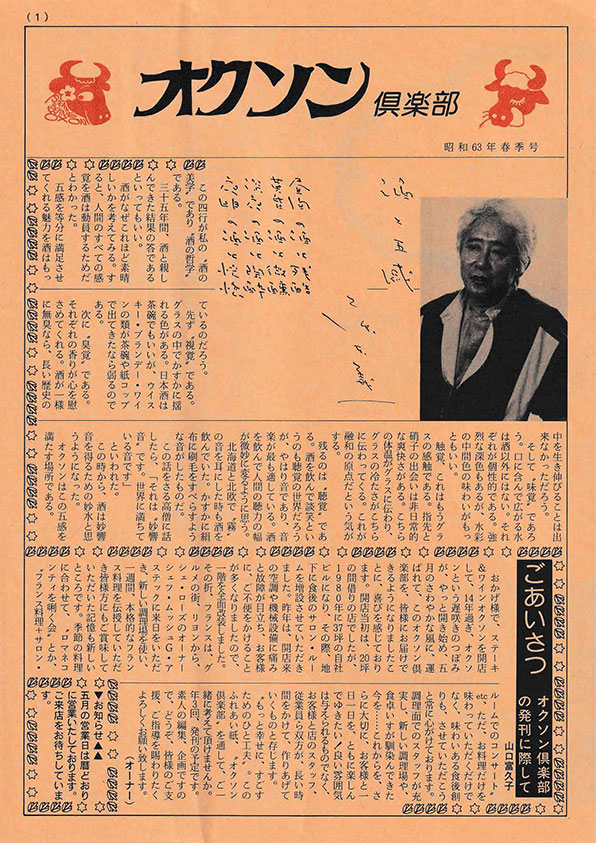 (1)
オクソン倶楽部
昭和63年春季号
酒と五感
この四行が私の〝酒の
美学〟であり〝酒の哲学〟
である。
三十五年間、酒と親し
んできた結果の答である
といってもいい。
酒がなぜこれほど素晴
しいかを考えてみる。す
ると、人間のすべての感
覚を酒は動員するためだ
とわかった。
五感を等分に満足させ
てくれる魅力を酒はもっ
ているのだろう。
先ず〝視覚〟である。
グラスの中でかすかに揺
れる色がある。日本酒は
茶碗でもいいが、ウイス
キー・ブランデー・ワイ
ンの類が茶碗や紙コップ
で出てきたなら弱るので
ある。
次に〝臭覚〟である。
それぞれの香りが心を慰
さめてくれる。酒が一様
に無臭なら、長い歴史の
中を生き伸びることは出
来なかっただろう。
そして〝味覚〟であ
る。口に含んで広がる水
は酒以外にはない。それ
ぞれが個性的である。強
烈な深色もあるが、水彩
の中間色の味わいがもっ
ともいい。
触覚、これはもうグラ
スの感触である。指先と
硝子の出会いは非日常的
な爽快さがある。こちら
の体温がグラスに伝わり、
グラスの冷たさがこちら
に伝わってくる。これが
融和の原点だという気が
する。
残るのは〝聴覚〟であ
る。酒を飲んで談笑とい
うのも聴覚の世界だろう
が、やはり音であり、音
楽が最も適している。酒
を飲んで人間の聴力の幅
が微妙に変るように思う。
北海道と北欧で〝霧〟
の音を耳にした時も酒を
飲んでいた。かすかに絹
布に刷毛をすべらすよう
な音がしたものだ。
この話をさる高僧に話
したら、それは〝妙響
音〟です。世界に満ちて
いる音です」
といわれた。
この時から、酒は妙響
音を得るための妙水と思
うようになった。
オクソンはこの五感を
満たす場所である。
ごあいさつ
オクソン倶楽部
の発刊に際して
山口富久子
おかげ様で、ステーキ
&ワインオクソンを開店
して、14年過ぎ、オクソ
ンという遅咲きのつぼみ
が、やっと開き始め、五
月のさわやかな風に、運
ばれて、このオクソン倶
楽部を、皆様にお届けで
きるようになりましたこ
とを、大変喜んでおりま
す。開店当初は、20坪
の間借りの店でしたが、
1980年に37坪の自社
ビルになり、その際、地
下に食後のサロン・ルー
ムを増設させていただき
ました。昨年は、開店来
の空調や機械設備に痛み
と故障が目立ち、お客様
に、ご不便をかけること
が多くなりましたので、
一階を全面改装しました。
その折、フランスは、グ
ルメの街、リヨンから、
シェ・ローズのオーナー
シェフ、ムッシュG・ア
ステックに来日をいただ
き、新しい調理場を使い、
一週間、本格的なフラン
ス料理を伝授していただ
き皆様方にもご賞味して
いただいた記憶も新しい
ところです。季節の料理
に合わせて、〝ロマネコ
ンティを囲む会〟とか、
〝フランス料理+サロン・
ルームでのコンサート〟
etc ただ、お料理だけを
味わっていただくだけで
なく、味わいある食後創
りも、させていただこう
と常に心がけております。
調理面でのスタッフが充
実し、新しい調理場や、
食卓いすが馴染んできた
今を……これからを、さ
らに大切に、お客様と一
日一日をもっとも楽しん
でゆきたい!良い雰囲気
は与えられるものでなく、
お客様と店のスタッフ、
従業員ら双方が、長い時
間をかけて、作りあげて
いくものと存じます。
〝もっと幸せに、すごす
ためのひと工夫〟。この
ふれあい紙、〝オクソン
倶楽部〟を通して、ご一
緒に考えて頂けませんか。
年3回、発刊の予定です。
素人の編集、企画ですの
で、どうぞ、皆様のご支
援、ご指導を賜わりたく
よろしくお願い致します。
(オーナー)
▼▼お知らせ▲▲
五月の営業日は暦どおり
に営業いたしております。
ご来店をお待ちしていま
す。